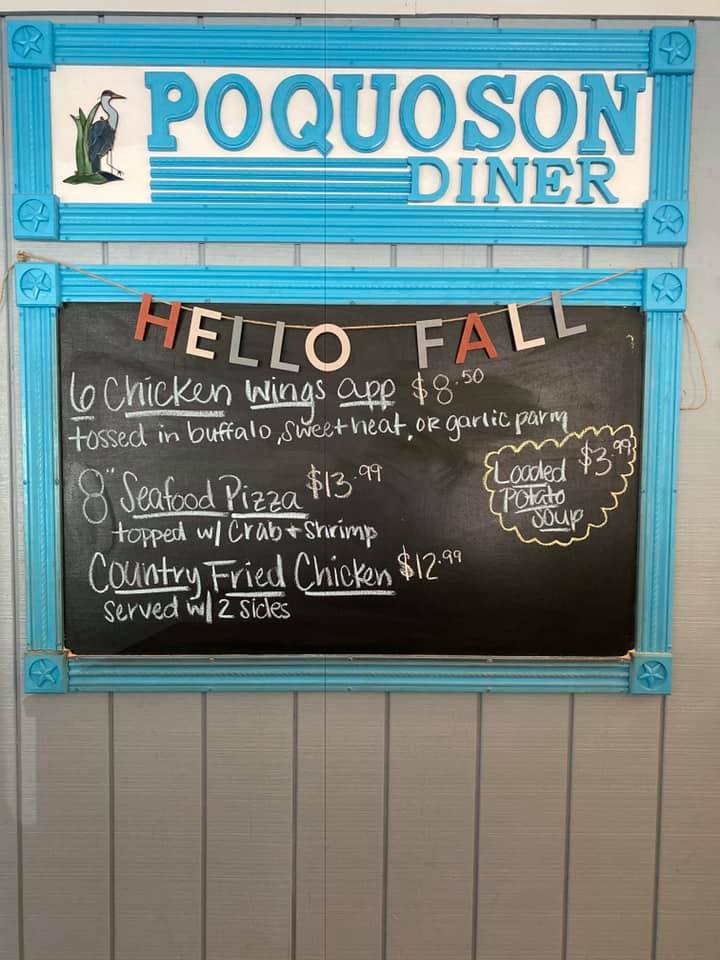 POQUOSON
DINER
HELLO FALL
6 Chicken Wings app $8.50
tossed in buffalo, sweet heat, or garlic parm
8" Seafood Pizza $13.99
topped w/ Crab + Shrimp
Loaded $3.99
Potato
Soup
Country Fried Chicken $12.99
served w/ 2 sides